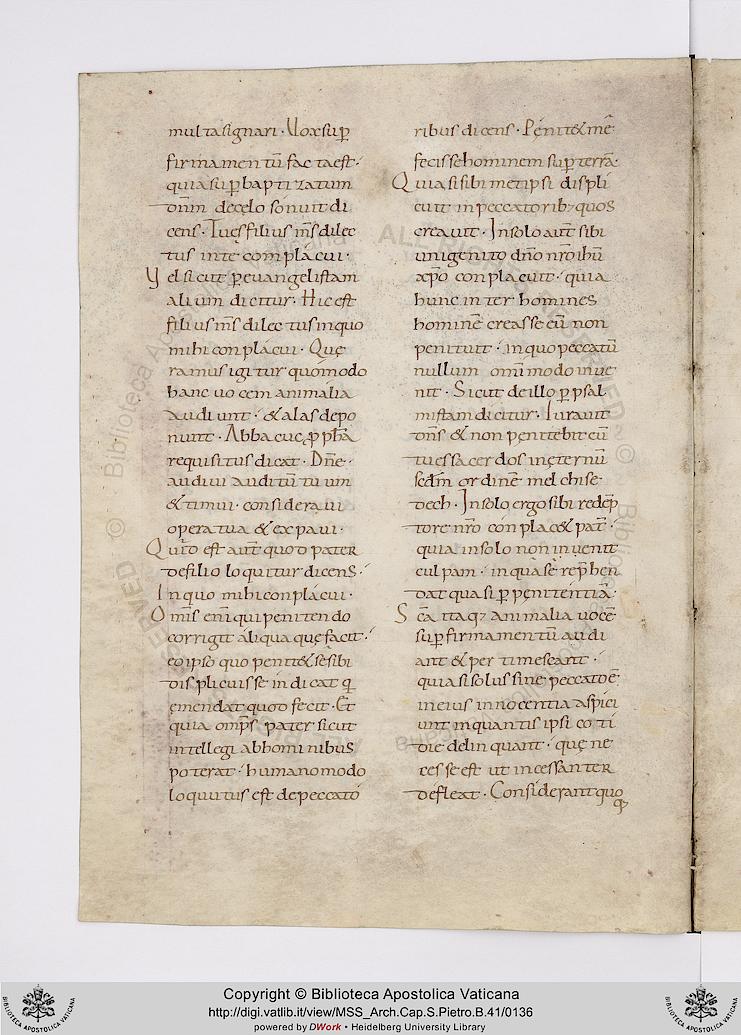 multa signari · Uox sup̄
firmamentū facta est ·
quia sup̄ baptizatum
dn̄m de celo sonuit di
cens · Tu es filius m̄s dilec
tus in te complacui ·
Vel sicut p̄ euangelistam
alium dicitur · Hic est
filius m̄s dilectus in quo
mihi conplacui · Quę
ramus igitur quomodo
hanc uocem animalia
audiunt · & alas depo
nunt · Abbacuc p̄pha
requisitus dicat · Dn̄e ·
audiui auditū tuum
& timui · consideraui
opera tua & expaui ·
Quid est aut̄ quod pater
de filio loquitur dicens ·
In quo mihi conplacui ·
Omīs enī qui penitendo
corrigit aliqua quę facit ·
eo ipso quo penit& se sibi
displicuisse indicat q̄
ęmendat quod fecit · Et
quia omp̄s pater sicut
intellegi ab hominibus
poterat · humano modo
locutus est de peccato
ribus dicens · Pęnit& mē
fecisse hominem sup̄ terrā ·
Quia si sibimetipsi displi
cuit in peccatorib; quos
creauit · In solo aut̄ sibi
unigenito dn̄o nr̄o ihū
xp̄o conplacuit · quia
hunc inter homines
hominē creasse eū non
penituit · in quo peccatū
nullum omī modo inue
nit · Sicut de illo p̄ psal
mistam dicitur · Iurauit
dn̄s & non pęnitebit eū
tu es sacerdos in ęternū
scdm̄ ordinē melchise
dech · In solo ergo sibi redēp
tore nr̄o conplac& pat̄ ·
quia in solo non inuenit
culpam · in qua se rep̄hen
dat quasi p̄ pęnitentiā ·
Scā itaq; animalia uocē
sup̄ firmamentū audi
ant & pertimescant ·
quia si solus sine peccato ē
in eius innocentia aspici
unt in quantis ipsi coti
die delinquant · quę ne
cesse est ut incessanter
defleat · Considerant quo
q;
Copyright © Biblioteca Apostolica Vaticana
http://digi.vatlib.it/view/MSS_Arch.Cap.S.Pietro.B.41/0136
powered by DWork • Heidelberg University Library